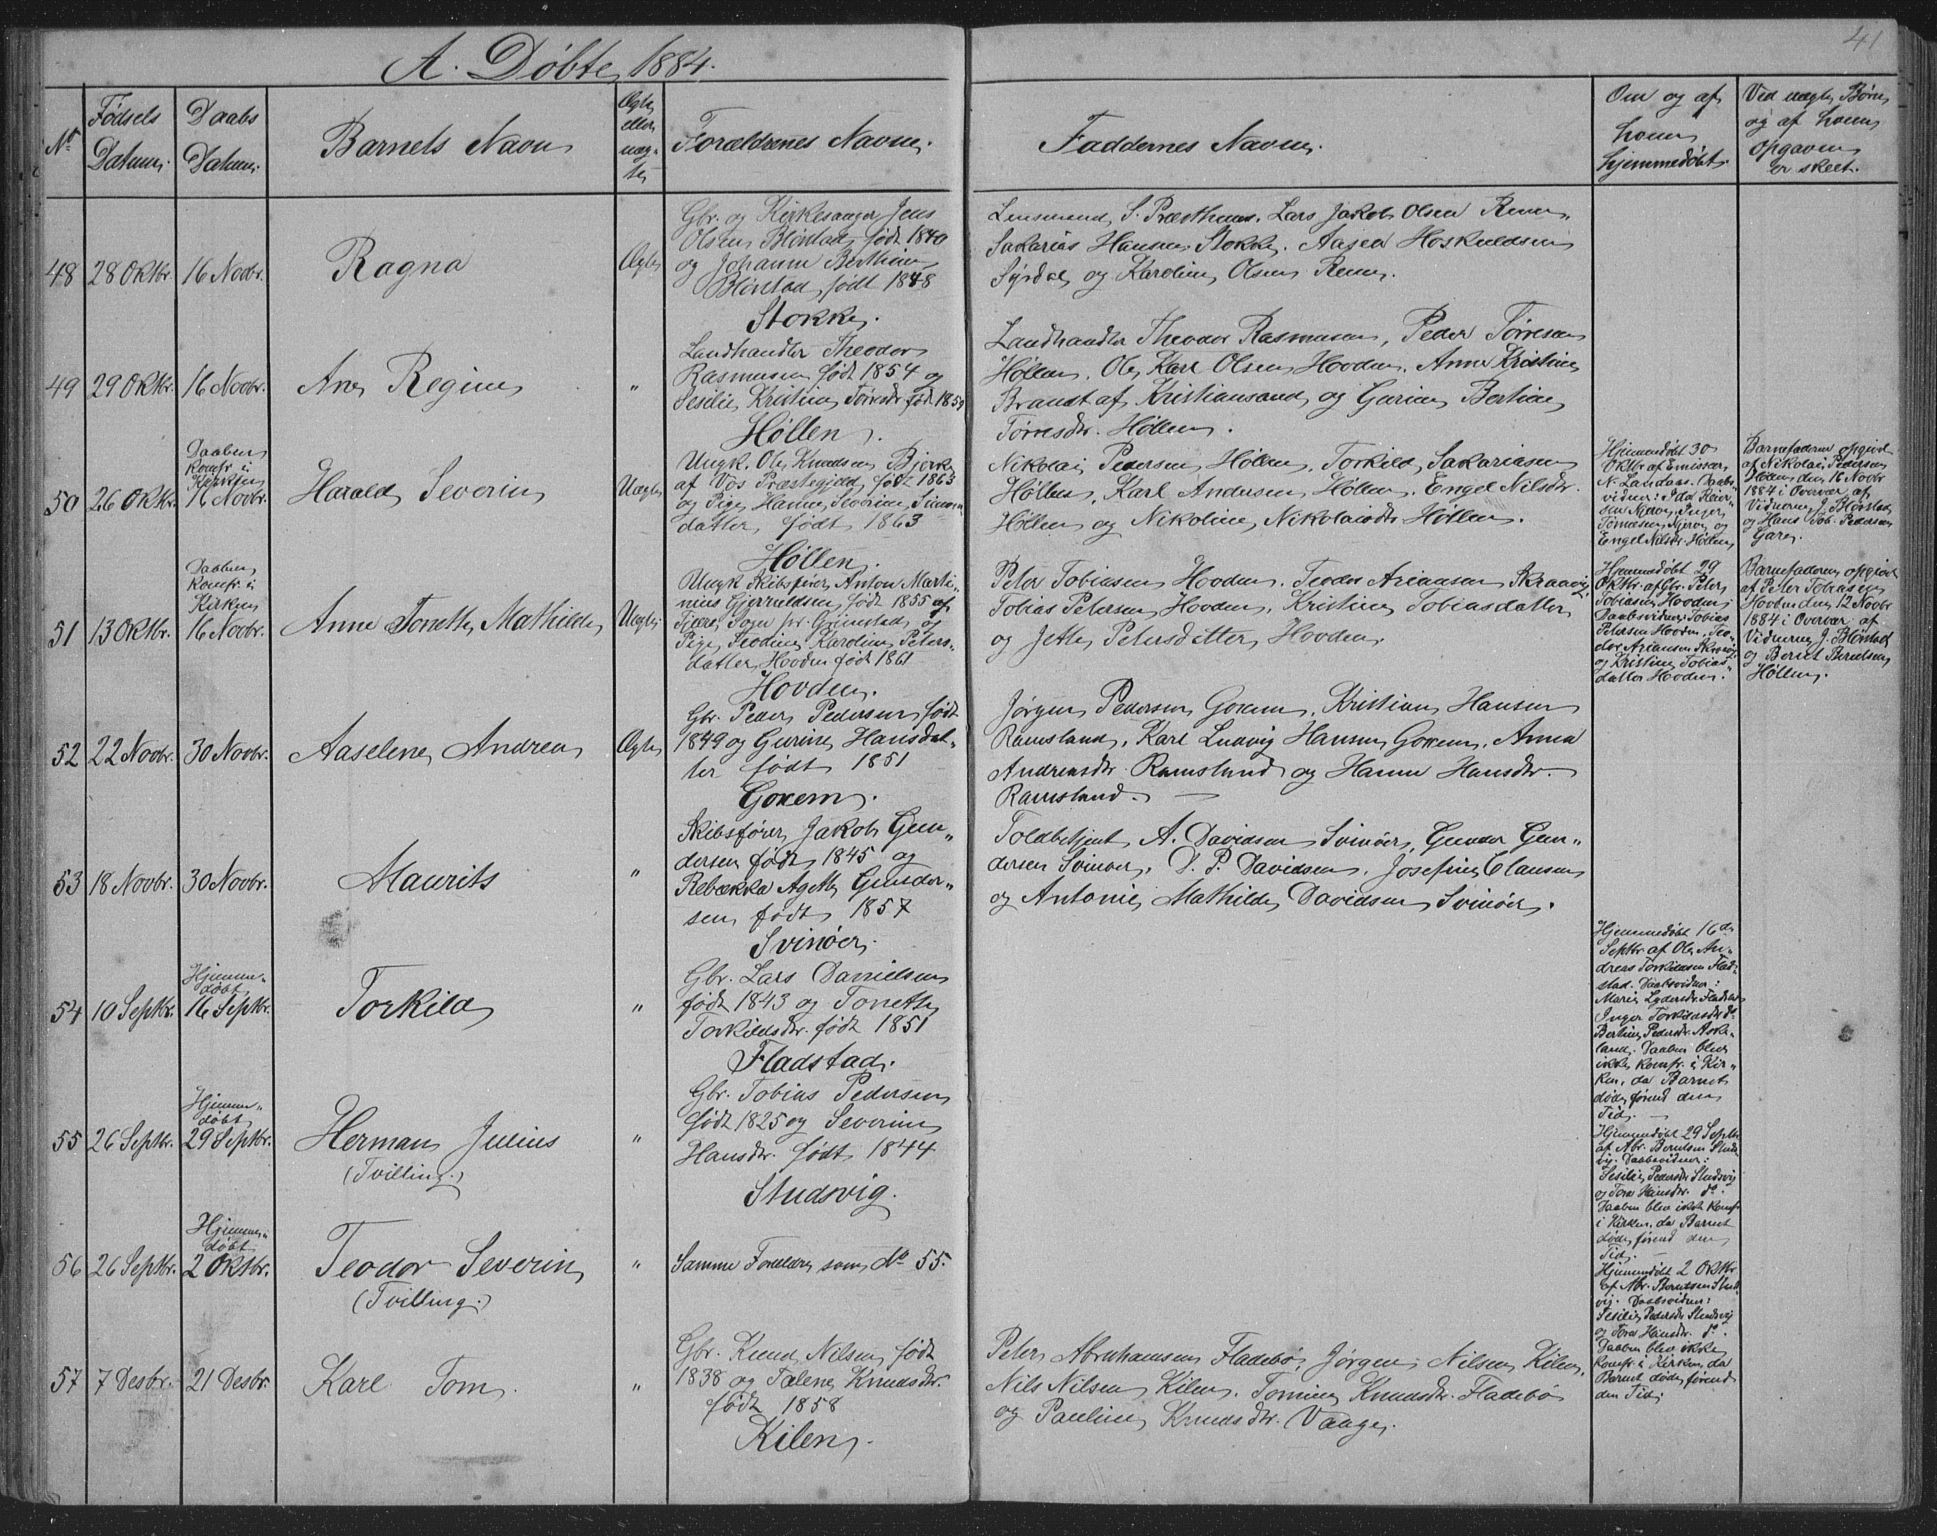 41
A. Döbte 1884.
No
Fødsels
Datum.
Daabs
Datum.
Barnets Navn
Ægte
eller
uæg-
te
Forældrenes Navne.
Faddernes Navne.
Om og af
hvem
hjemmedøbt.
Ved uægte Børn
og af hvem
Opgaven
er skeet.
48
28 Oktbr.
16 Novbr.
Ragna
Ægte
Gbr. og Kirkesanger Jens
Olsen Blörstad født 1840
og Johanne Berthine
Blörstad født 1848
Stokke.
Lensmand S. Præsthuus. Lars Jakob Olsen Reme.
Sakarias Hansen Stokke. Aased Hoskuldsen
Syrdal og Karoline Olsen Reme.
49
29 Oktbr.
16 Novbr.
Ane Regine
"
Landhandler Theodor
Rasmussen født 1854 og
Sesilie Kristine Törresdr født 1859
Höllen.
Landhandler Theodor Rasmussen, Peder Törresen
Höllen. Ole Karl Olsen Hovden. Anne Kristine
Brandt af Kristiansand og Gurine Bertine
Törresdr. Höllen.
50
26 Oktbr.
Daaben
Komfr. i
Kirken
16 Novbr.
Harald Severin
Uægte
Ungk. Ole Knudsen Bjork
af Vos Præstegjeld født 1863
og Pige Hanne Severine Simons
datter født 1863
Höllen.
Nikolai Pedersen Höllen. Torkild Sakariasen
Höllen. Karl Andersen Höllen. Engel Nilsdtr.
Höllen og Nikoline Nikolaidtr Höllen.
Hjemmedøbt 30
Oktbr af Emissær
N. Landaas. Daabs-
vidner: Ida Reier-
sen Njerve, Inger
Tönnesen Njerve og
Engel Nilsdr. Höllen
Barnefaderen opgivet
af Nikolai Pedersen
Höllen den 16 Novbr
1884 i Overvær af
Vidnerne J. Blörstad
og Hans Tob. Pedersen
Gare.
51
13 Oktbr.
Daaben
Komfr. i
Kirken
16 Novbr.
Anne Tonette Mathilde
Uægte
Ungk Skibsfører Anton Marti-
nius Gjerruldsen født 1855 af
Fjære Sogn pr. Grimstad og
Pige Teodine Karoline Peters-
datter Hovden født 1861
Hovden.
Peter Tobiasen Hovden. Teodor Ariansen Skraavig
Tobias Petersen Hovden. Kristine Tobiasdatter
og Jette Petersdatter Hovden.
Hjemmedøbt 29
Oktbr. af Gbr. Peter
Tobiasen Hovden.
Daabsvidner: Tobias
Petersen Hovden, Teo-
dor Ariansen Skraavig
og Kristine Tobias-
datter Hovden.
Barnefaderen opgivet
af Peter Tobiasen
Hovden den 12 Novbr
1884 i Overvær af
Vidnerne J. Blörstad
og Bernt Berntsen
Höllen.
52
22 Novbr.
30 Novbr.
Aaselene Andrea
Ægte
Gbr. Peder Pedersen født
1849 og Gurine Hansdat-
ter født 1851
Goxem.
Jørgen Pedersen Goxem. Kristian Hansen
Ramsland. Karl Ludvig Hansen Goxem. Anna
Andreasdtr. Ramsland og Hanne Hansdtr.
Ramsland.
53
18 Novbr.
30 Novbr.
Maurits
"
Skibsfører Jakob Gun-
dersen født 1845 og
Rebekka Agethe Gunder-
sen født 1857
Svinöer.
Toldbetjent A. Davidsen Svinöer, Gunder Gun-
dersen Svinöer. D. P. Davidsen. Josefine Clausen
og Antonie Mathilde Davidsen Svinöer.
54
10 Septbr.
Hjemme-
døbt
16 Septbr.
Torkild
"
Gbr. Lars Danielsen
født 1843 og Tonette
Torkildsdr. født 1851
Fladstad.
Hjemmedøbt 16de
Septbr af Ole An-
dreas Torkildsen Flad-
stad. Daabsvidner:
Marie Lydersdr. Fladstad
Inger Torkildsdr do
Bertine Pedersdr. Aske-
land. Daaben blev
ikke komfr. i Kir-
ken, da Barnet
døde førend den
Tid.
55
26 Septbr.
Hjemme-
døbt
29 Septbr.
Herman Julius
(Tvilling.)
"
Gbr. Tobias Pedersen
født 1825 og Severine
Hansdr. født 1844
Studsvig.
Hjemmedøbt 29 Septbr
af Abr. Berntsen Studs-
vig. Daabsvidner:
Sesilie Pedersdr Studsvig
og Tora Hansdr. do.
Daaben blev ikke komfr
i Kirken, da Barnet
døde førend den
Tid.
56
26 Septbr.
Hjemme-
døbt
2 Oktbr.
Teodor Severin
(Tvilling.)
"
Samme Forældre som No 55.
Hjemmedøbt 2 Oktbr
af Abr. Berntsen Studs-
vig. Daabsvidner:
Sesilie Pedersdr Studsvig
og Tora Hansdr. do.
Daaben blev ikke
komfr. i Kirken, da
Barnet døde førend
den Tid.
57
7 Desbr.
21 Desbr.
Karl Tom.
"
Gbr. Knud Nilsen født
1838 og Talene Knudsdtr.
født 1858
Kilen.
Peter Abrahamsen Fladebö, Jørgen Nilsen Kilen,
Nils Nilsen Kilen. Tomine Knudsdtr. Fladebö
og Pauline Knudsdtr. Vaage.